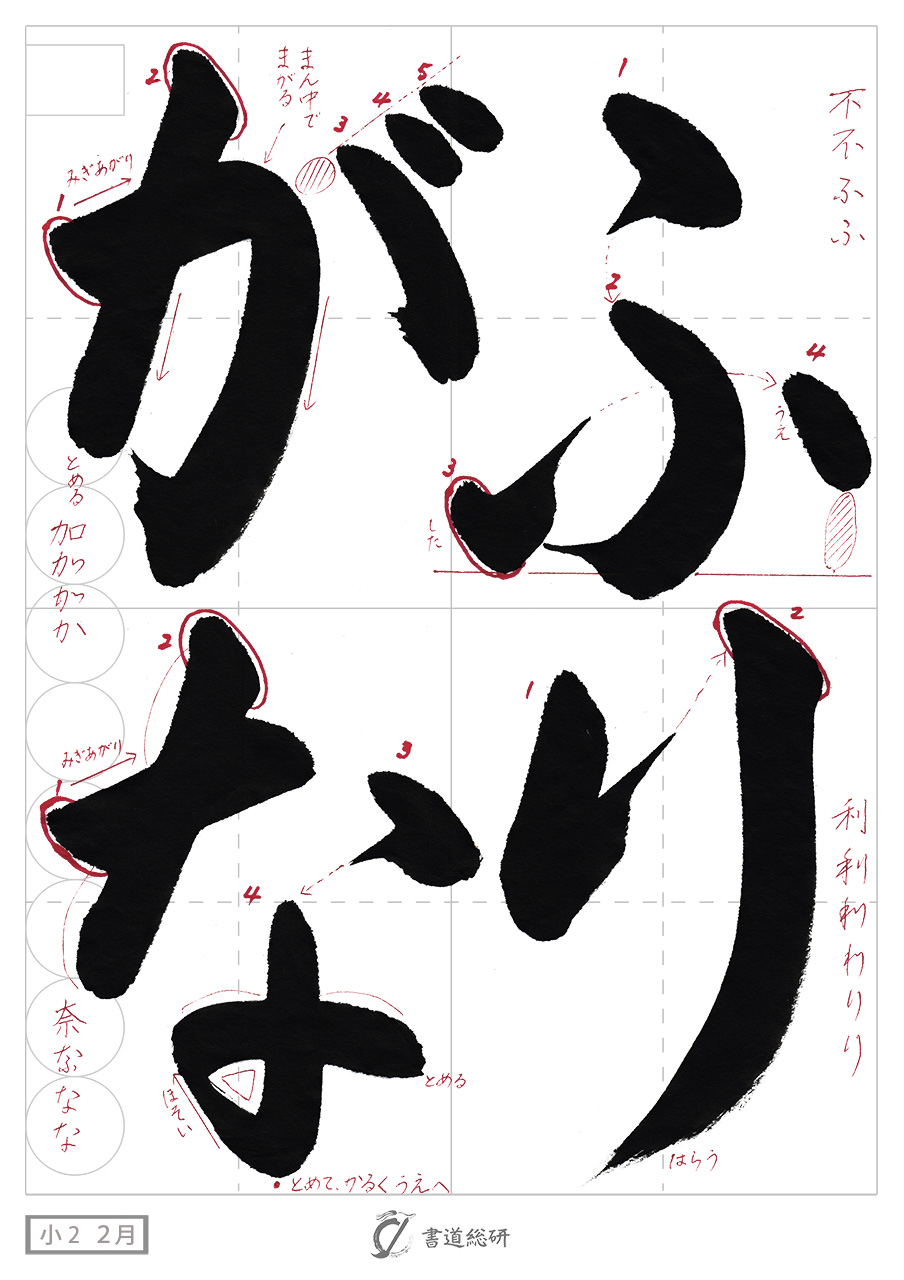 ふり
がな
1
2
3
4
した
うえ
不不ふふ
1
2
はらう
利利利わりり
1
2
3
4
5
みぎあがり
まん中で
まがる
とめる
加かかか
1
2
3
4
みぎあがり
とめる
ほそい
とめて、かるくうえへ
奈なな な
小2 2月
書道総研